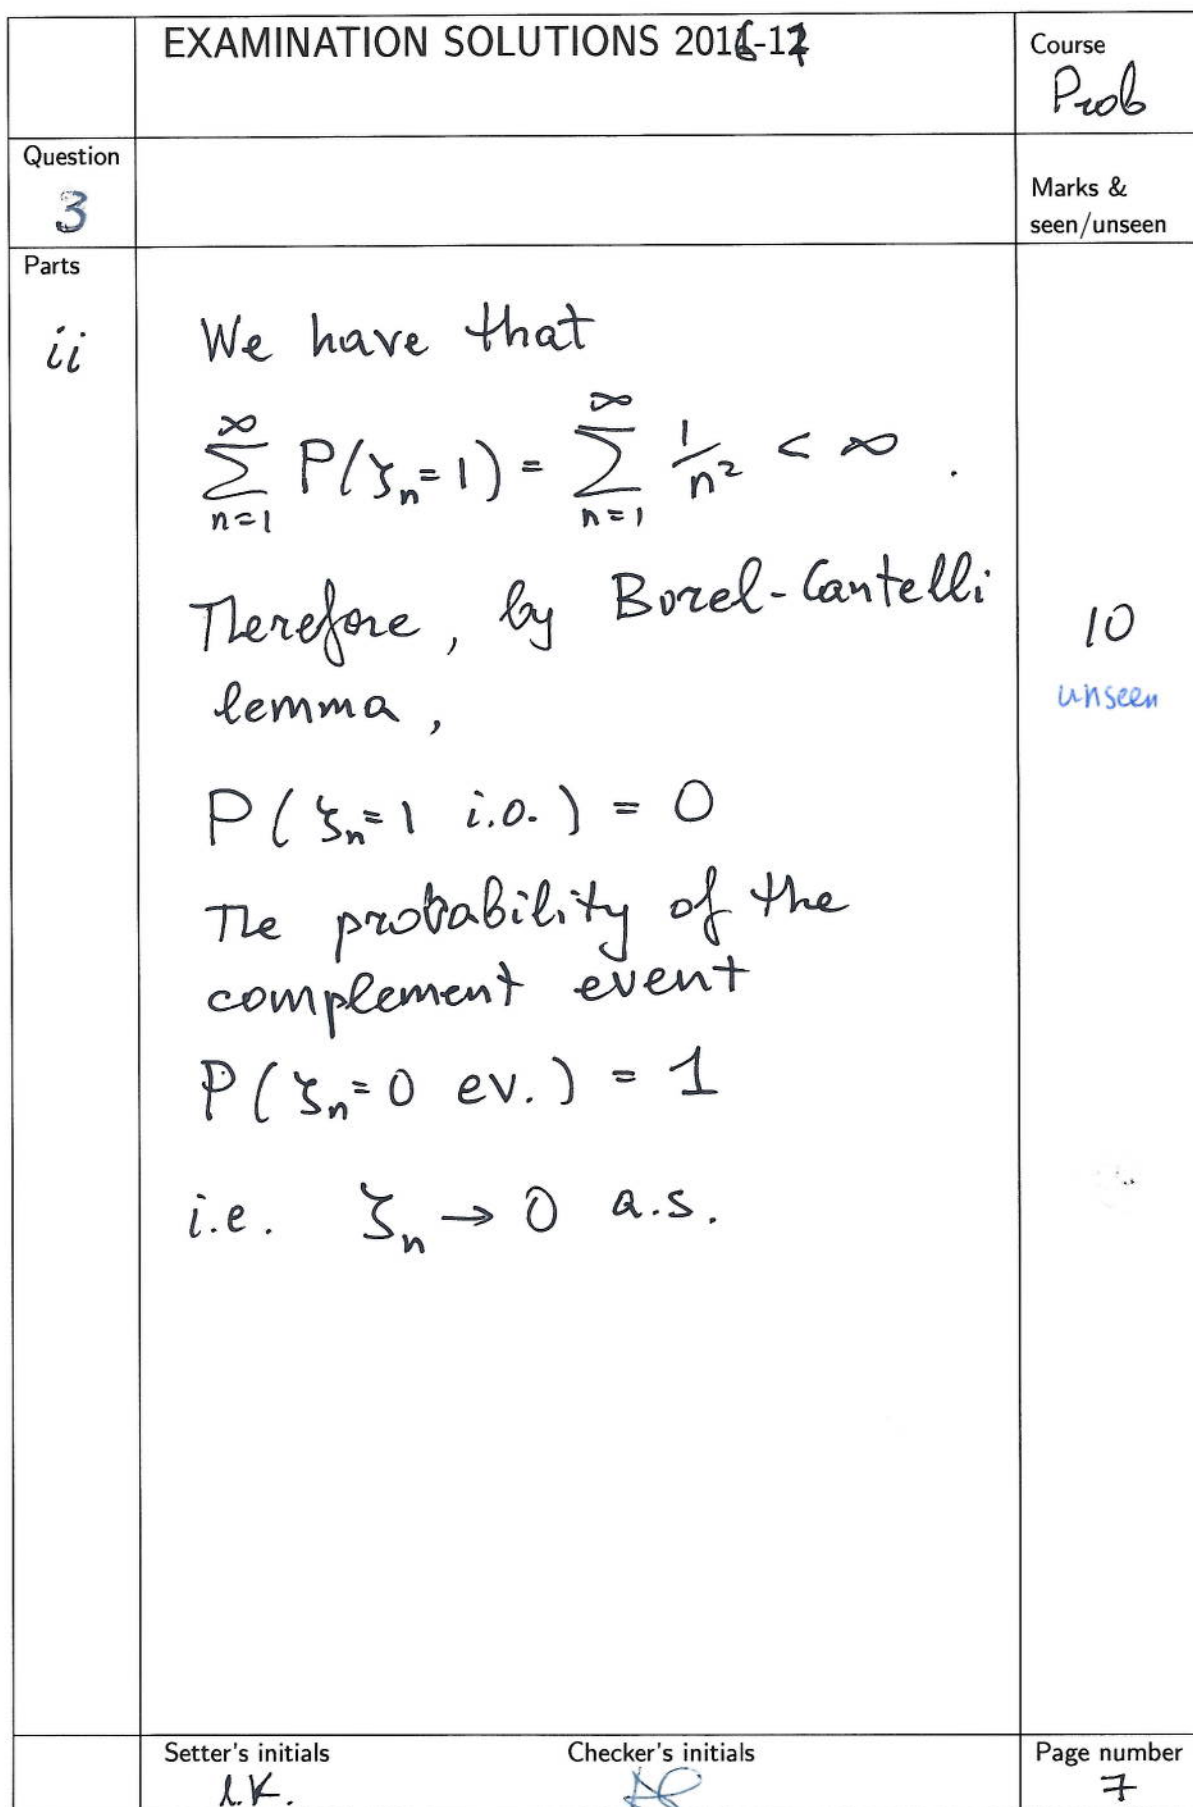 EXAMINATION SOLUTIONS 2016-17
Course
Prob
Question
3
Marks &
seen/unseen
Parts
ii
We have that
∑_{n=1}^{∞} P(ζ_n = 1) = ∑_{n=1}^{∞} 1/n² < ∞ .
Therefore, by Borel-Cantelli
10
lemma,
unseen
P(ζ_n = 1 i.o.) = 0
The probability of the
complement event
P(ζ_n = 0 ev.) = 1
i.e. ζ_n → 0 a.s.
Setter's initials
Checker's initials
Page number
I.K.
7